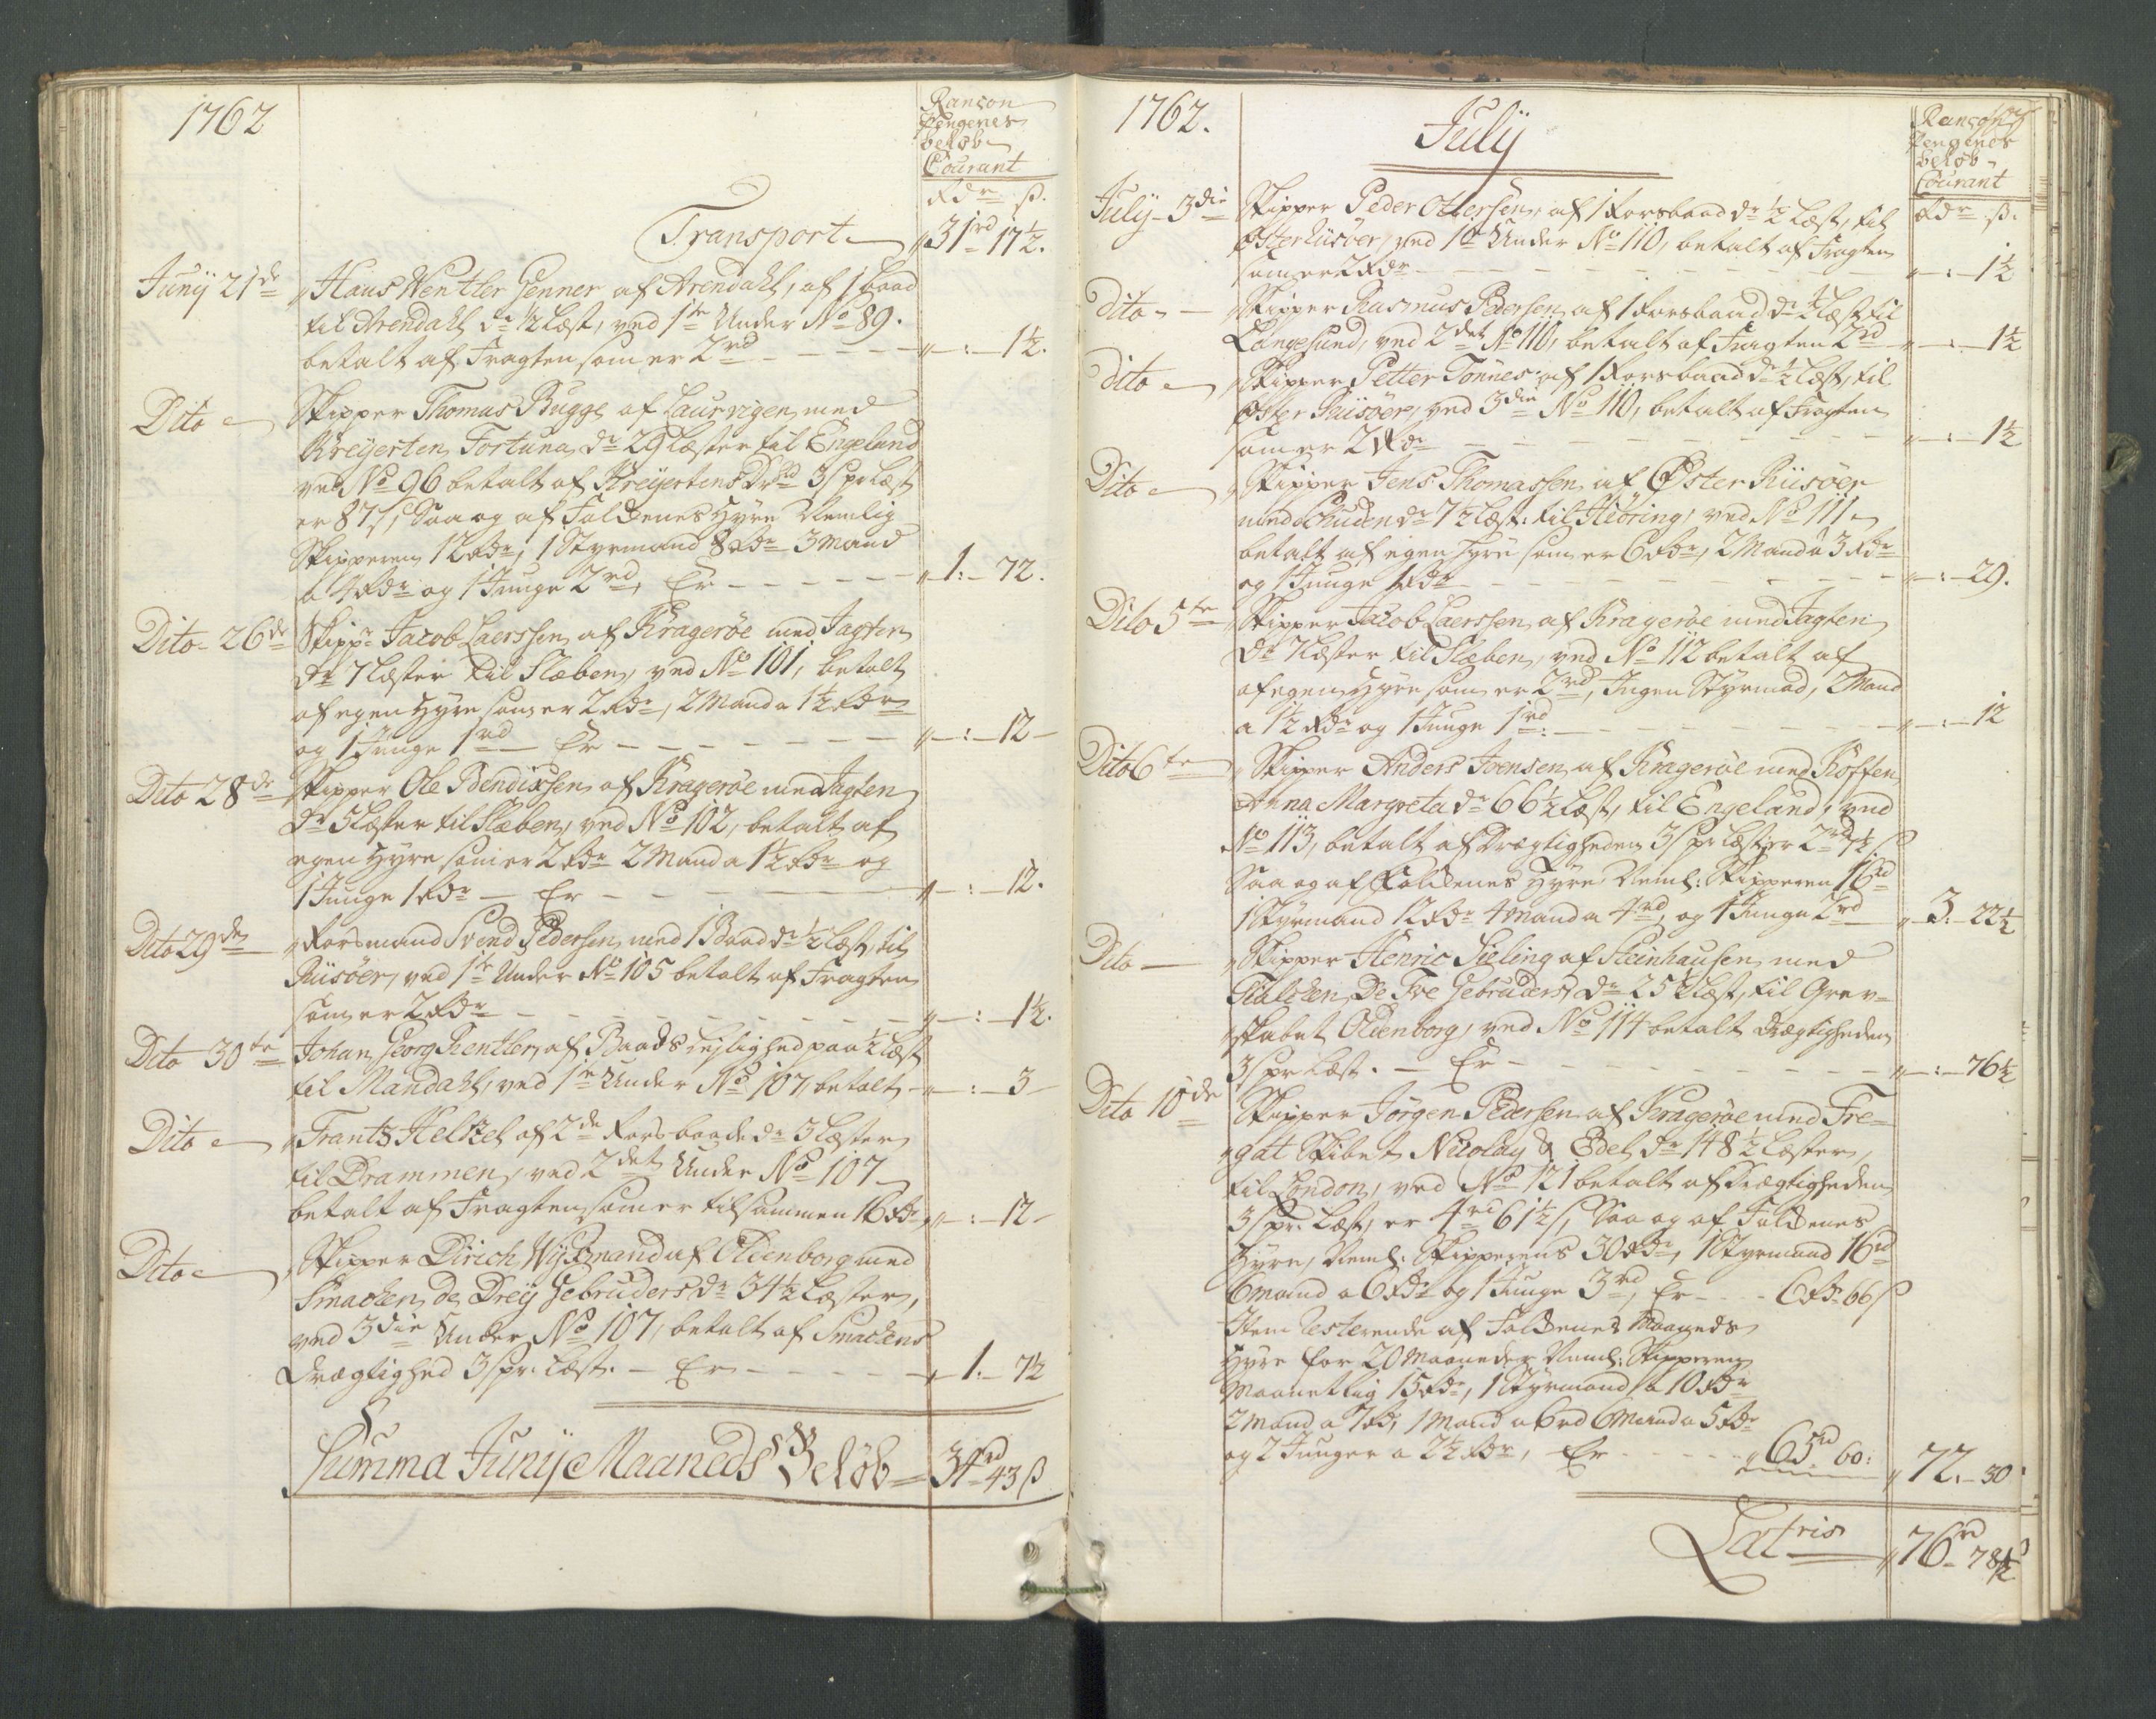 1762
Rançon
Pengenes
beløb
Courant
Rdr ß.
Transport
31rd 17½.
Junÿ 21de
Hans Wentler Jenner af Arendahl, af 1 baad
til Arendahl dr ½ Læst, ved 1te Under No 89.
betalt af Fragten som er 2rd — „ — : — 1½.
Dito
Skipper Thomas Bugge af Laurvigen med
Kreÿerten Fortuna dr 29 Læster til Engeland
ved No 96 betalt af Kreÿertens Dr 3 s pr Læst
er 87 s, Saa og af Folkenes Hyre Nemlig
Skipperen 12 Rdr, 1 Styrmand 8 Rdr 3 Mand
a 4 Rdr og 1 Junge 2rd, Er — „ 1: — 72.
Dito 26de
Skippr Jacob Laerssen af Kragerøe med Jagten
dr 7 Læster til Flæben, ved No 101, betalt
af egen Hyre som er 2 Rdr, 2 Mand a 1½ Rdr
og 1 Junge 1rd Er — „ — : — 12
Dito 28de
Skipper Ole Bendixsen af Kragerøe med Jagten
dr 5 Læster til Flæben, ved No 102, betalt af
egen Hyre som er 2 Rdr 2 Mand a 1½ Rdr og
1 Junge 1 Rdr — Er — „ — : — 12.
Dito 29de
Forsmand Svend Pedersen med 1 Baad dr ½ Læst, til
Riisøer, ved 1te Under No 105 betalt af Fragten
som er 2 Rdr — „ — : — 1½.
Dito 30te
Johan Georg Rentler, af Baads Leylighed paa ½ Læst
til Mandahl, ved 1te Under No 107, betalt — „ — : — 3
Dito
Frantz Helzel af 2de Forsbaade dr 3 Læster
til Drammen, ved 2det Under No 107
betalt af Fragten som er tilsammen 16 Rdr, „ — : — 12
Dito
Skipper Dirich Wÿkmand af Oldenborg med
Smacken de Dreÿ Gebruders dr 34½ Læster,
ved 3die Under No 107, betalt af Smackens
Drægtighed 3 s pr. Læst. — Er — „ 1. — 7½
Summa Junÿ Maaneds Beløb — 34rd 43 ß
1762.
Julÿ
Rançon
Pengenes
beløb
Courant
Rdr ß.
Julÿ 3die
Skipper Peder Ottersen, af 1 Forsbaad dr ½ Læst, til
Østerriisøer, ved 1te Under No 110, betalt af Fragten
som er 2 Rdr — „ — : — 1½
Dito
Skipper Rasmus Pedersen af 1 Forsbaad dr ½ Læst til
Langesund, ved 2det No 110, betalt af Fragten 2rd „ — : — 1½
Dito
Skipper Petter Tönnes af 1 Forsbaad dr ½ Læst, til
Øster Riisøer, ved 3die No 110, betalt af Fragten
som er 2 Rdr — „ — : — 1½
Dito
Skipper Jens Thomassen af Øster Riisøer
med Schuden dr 7½ Læst: til Hiöring, ved No 111
betalt af egen Hyre som er 6 Rdr, 2 Mand a 3 Rdr
og 1 Junge 1 Rdr — „ — : — 29.
Dito 5te
Skipper Jacob Laerssen af Kragerøe med Jagten
dr 7 Læster til Flæben, ved No 112 betalt af
af egen Hyre som er 2rd, Ingen Styrmad, 2 Mand
a 1½ Rdr og 1 Junge 1rd: — „ — : — 12
Dito 6te
Skipper Anders Ivensen af Kragerøe med Koffen
Anna Margreta dr 66½ Læst, til Engeland, ved
No 113, betalt af Drægtigheden 3 s pr Læst er 2rd 7½ s
Saa og af Folkenes Hyre Neml: Skipperen 16rd
1 Styrmand 12 Rdr 4 Mand a 4rd, og 1 Junge 2rd „ 3. — 22½
Dito
Skipper Henric Sieling af Steinhausen med
Tialcken De Tve Gebruders dr 25½ Læst, til Grev-
skabet Oldenborg, ved No 114 betalt Drægtigheden
3 s pr Læst. — Er — „ — : — 76½
Dito 10de
Skipper Jörgen Pedersen af Kragerøe med Fre-
gat Skibet Nicolay & Edel dr 148½ Læster,
til London, ved No 121 betalt af Drægtigheden
3 s pr. Læst, er 4rd 61½ s, Saa og af Folkenes
Hyre, Neml: Skipperens 30 Rdr, 1 Styrmand 16rd
6 Mand a 6 Rdr og 1 Junge 3rd, Er — 6 Rdr 66 s
Item resterende af Folkenes Maaneds
Hyre for 20 Maaneder Neml: Skipperen
Maanetlig 15 Rdr, 1 Styrmand a 10 Rdr
2 Mand a 7 Rd, 1 Mand a 6rd 6 Mand a 5 Rdr
og 2 Junger a 2½ Rdr, Er — „ 65rd 60: „ 72. — 30
Latris „ 76rd 78½